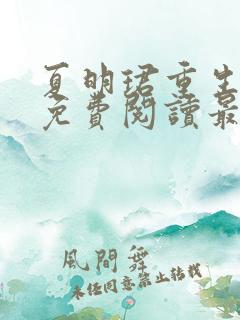 夏明珺重生
免費閱讀最
風間舞
未經同意禁止轉載